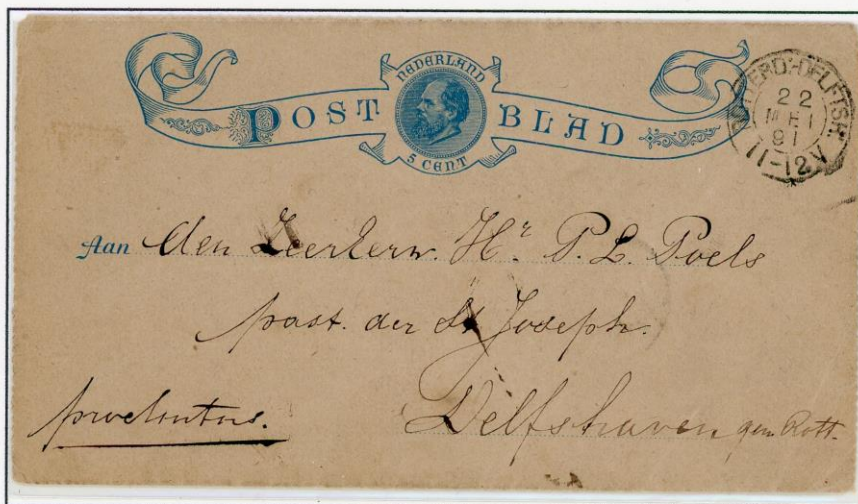 NEDERLAND
POST BLAD
5 CENT
ROTTERD:-DELFTSH:
22
MEI
91
11-12V
Aan den Zeer Eerw. Hr. P. L. Poels
past. der St Joseph.
Delfshaven gem Rott.